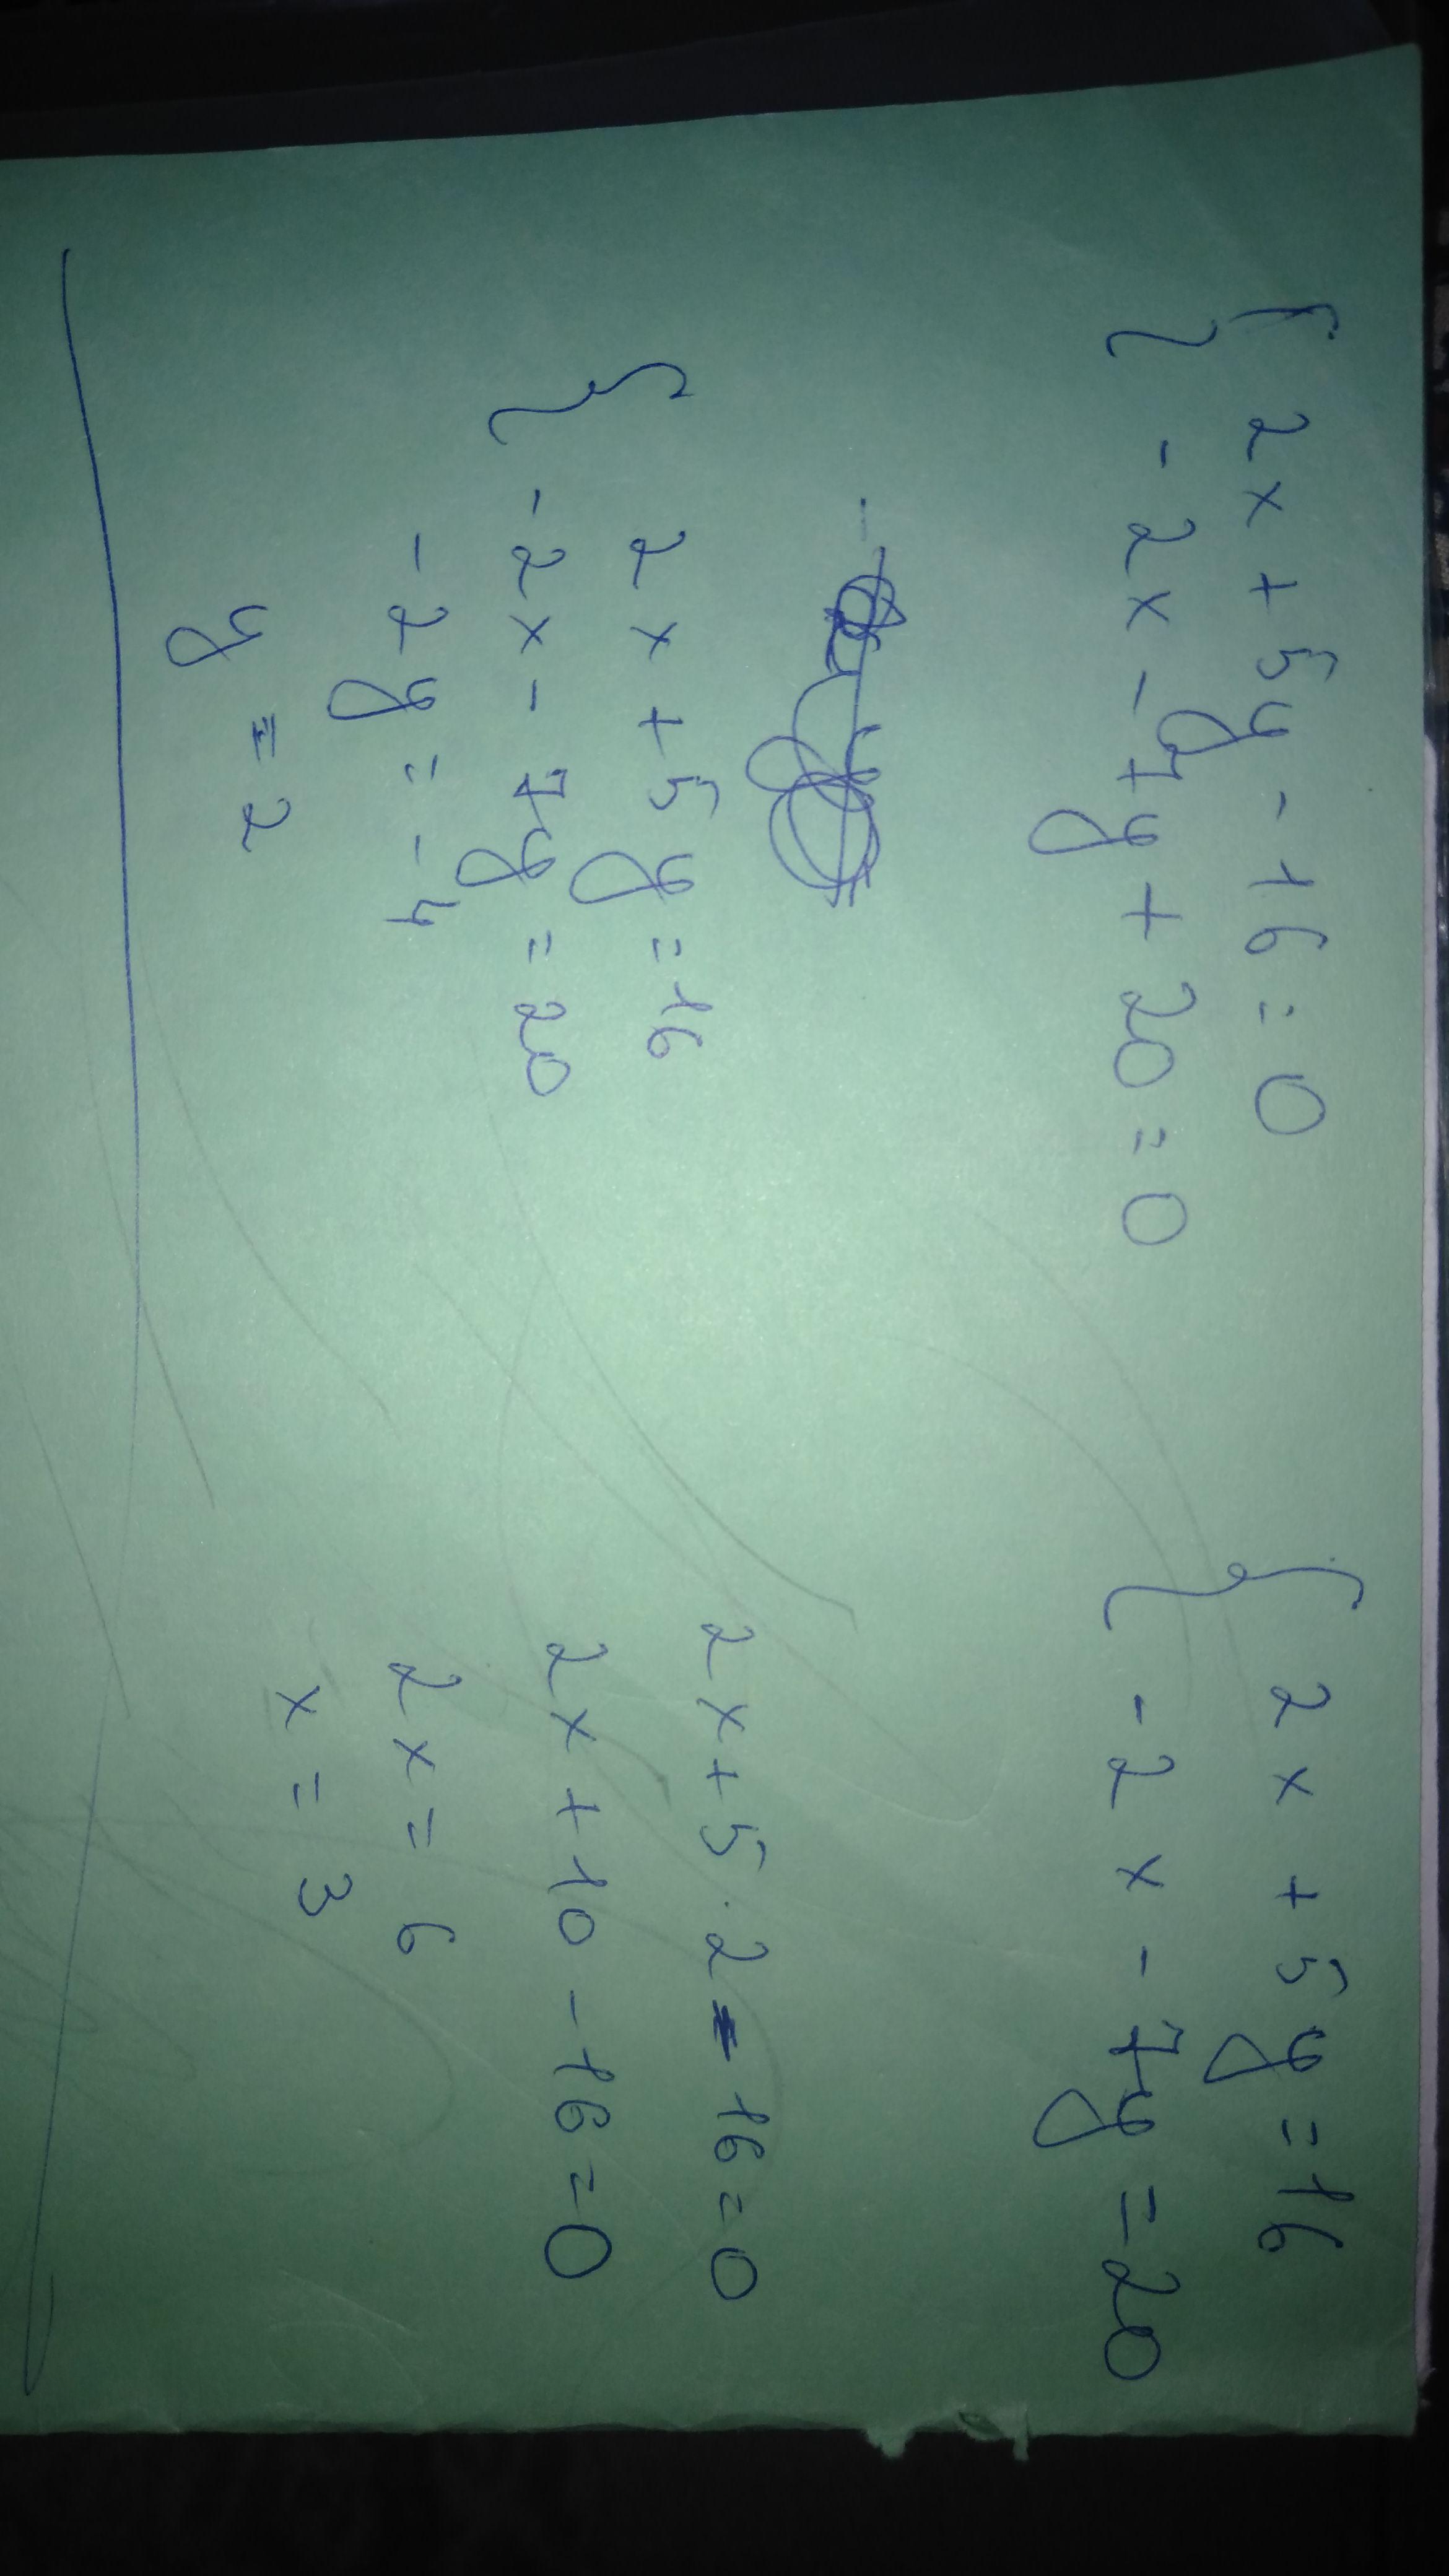 { 2x + 5y - 16 = 0
- 2x - 7y + 20 = 0
{ 2x + 5y = 16
- 2x - 7y = 20
- 2y = - 4
y = 2
{ 2x + 5y = 16
- 2x - 7y = -20
2x + 5 · 2 - 16 = 0
2x + 10 - 16 = 0
2x = 6
x = 3